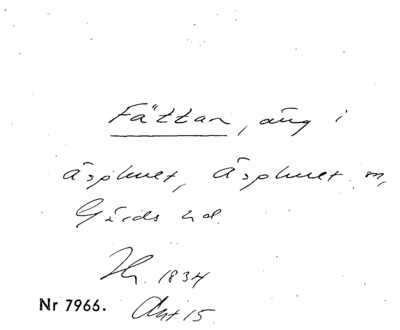 Fättan, äng i
Äsphult, Äsphult sn,
Gärds hd.
1834
Nr 7966. Akt 15